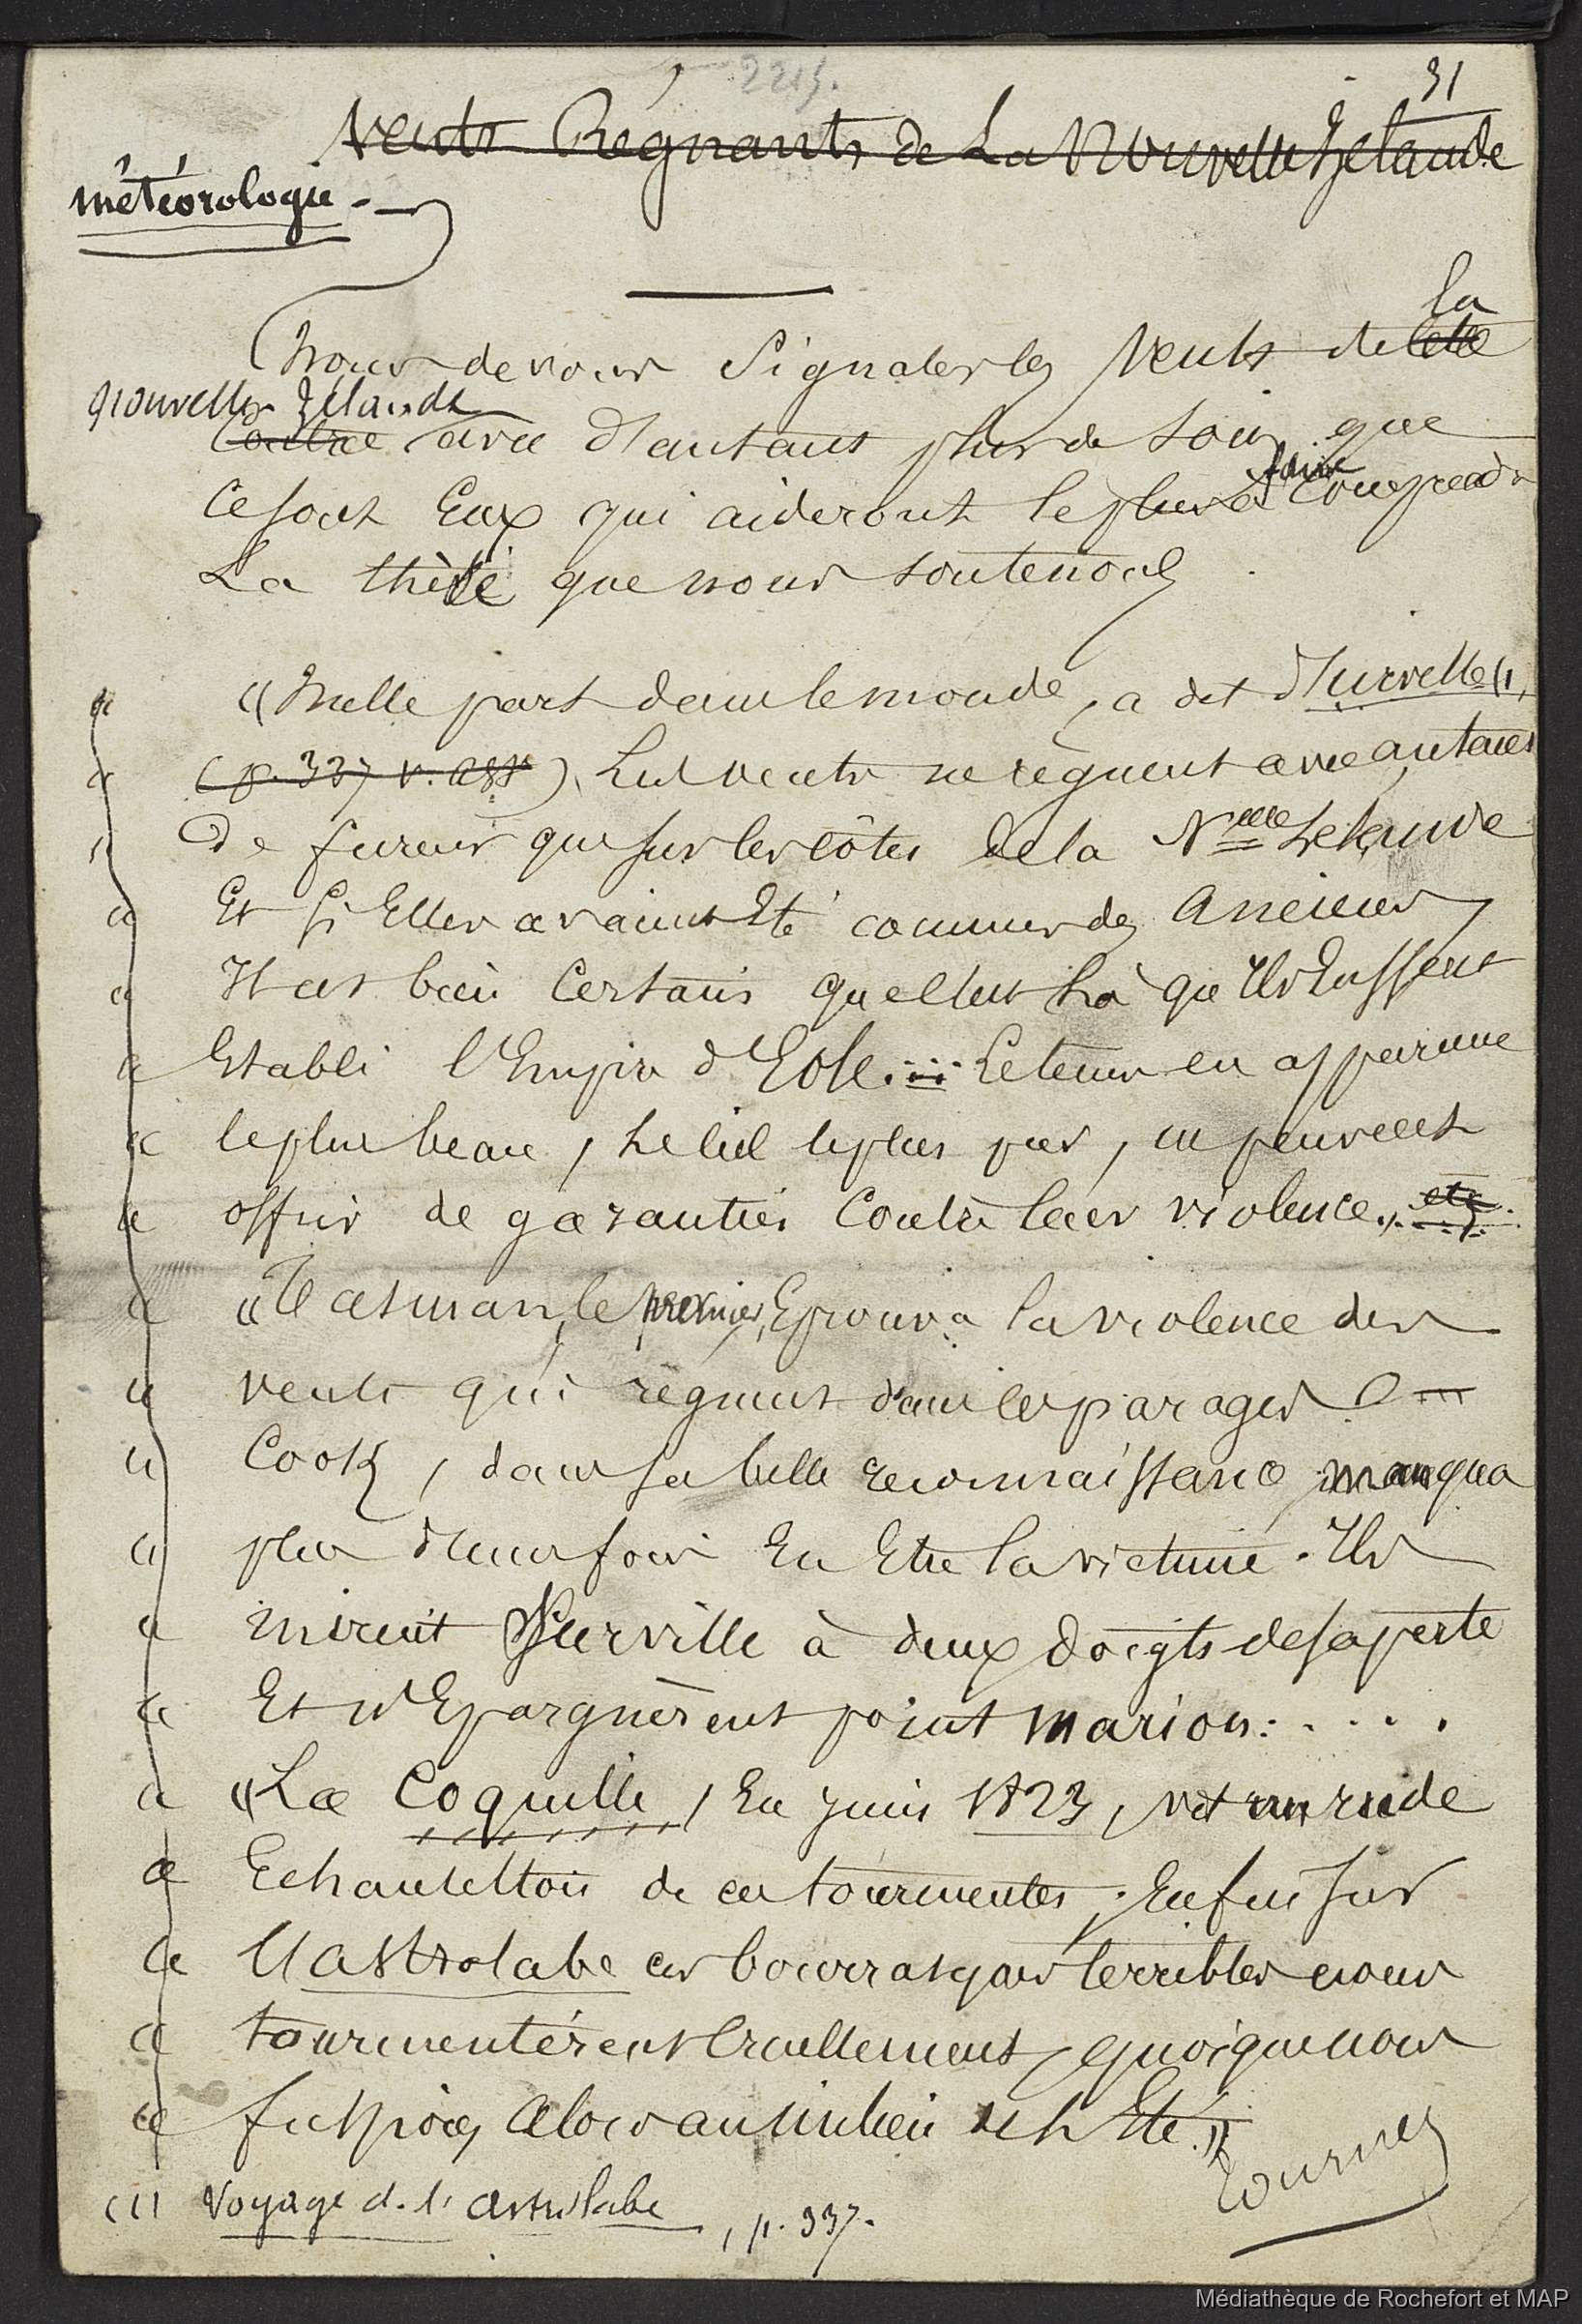 2215.
31
Vents Régnants de La Nouvelle Zélande
météorologie -
la
Nous devons signaler les vents de cette
nouvelle Zélande
Contrée avec d'autant plus de soin que
faire
ce sont Eux qui aideront le plus à comprendre
La thèse que nous soutenons
« Nulle part dans le monde, a dit d'Urville (1)
« (p. 337 v. ast) Les vents ne règnent avec autant
« De fureur que sur les côtes de la Nelle Zelande
« Et si Elles avaient Eté connues des Anciens,
« Il est bien Certain que c'est là qu'Ils Eussent
« Etabli l'Empire d'Eole.... Le tems en apparence
« le plus beau, le ciel le plus pur, ne peuvent
« offrir de garanties Contre leur violence,. etc.
« « Tasman, le premier, Eprouva la violence des
« vents qui règnent dans ces parages
« Cook, dans sa belle reconnaissance manqua
« plus d'une fois En Etre la victime. Ils
« mirent Surville à deux doigts de sa perte
« Et n'Epargnèrent point Marion.....
« « La Coquille, En juin 1823, vit un rude
« Echantillon de ces tourmentes; Enfin sur
« l'Astrolabe ces bourrasques terribles nous
« tourmentèrent Cruellement, quoique nous
« fussions alors au milieu de l'Eté. »
tournez
(1) Voyage de l'astrolabe, p. 337.
Médiathèque de Rochefort et MAP